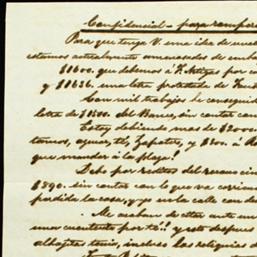 Confidencial - para romper
Para que tenga V. una idea de nues
estamos actualmente amenazados de emba
$1600. que debemos á F. Artigas por
y $1636. una letra protestada de
Con mil trabajos he conseguido
letra de $1500. del Banco, sin contar con
Estoy debiendo mas de $2000
tamos, azucar, té, Zapatos, y $300. á
que mandar á la plaza!
Debo por reditos del
$890. sin contar con lo que va corrien
perdida la casa, y yo en la calle con
Me acaban de citar ante un
una cuentecita por té!! y esto despues
alhajitas tenia, inclusas las reliquias d